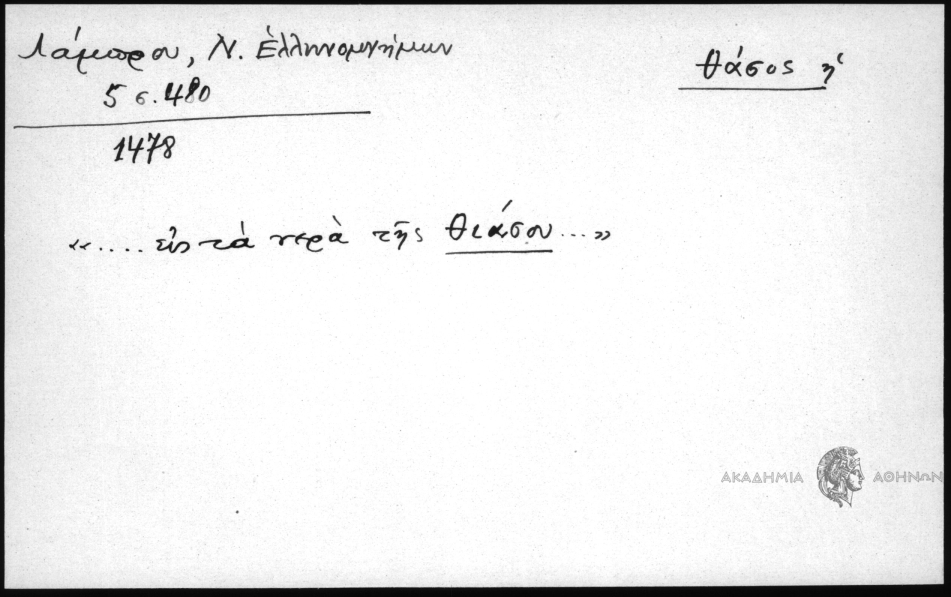 Λάμπρου, Ν. Ἑλληνομνήμων
5 σ. 480
1478
Θάσος ἡ
«.... εἰς τὰ νερὰ τῆς Θιάσου...»
ΑΚΑΔΗΜΙΑ ΑΘΗΝΩΝ